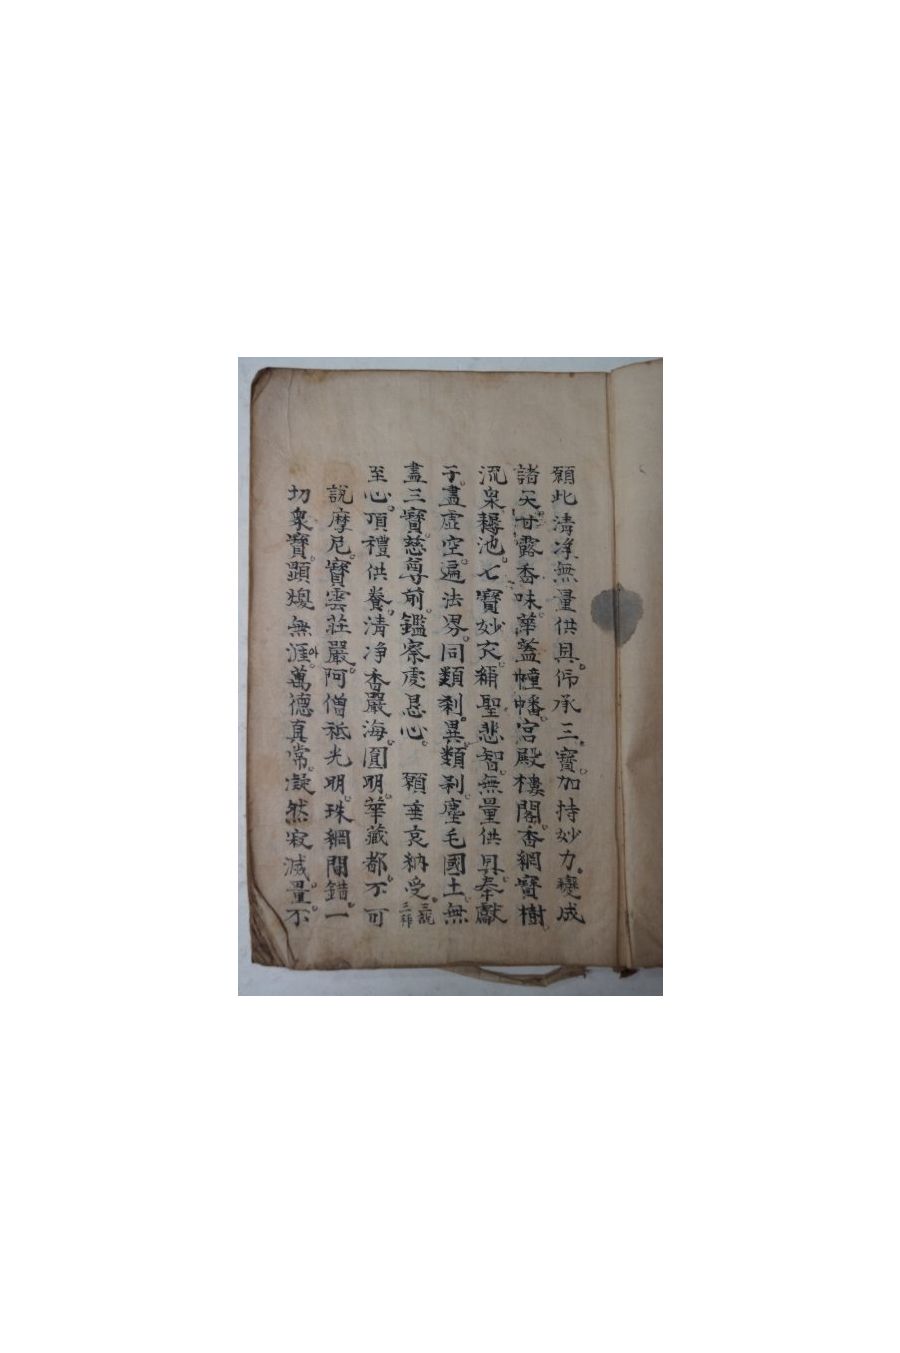 願此清淨無量供具仰承三寶加持妙力變成
諸天甘露香味華蓋幢幡宮殿樓閣香網寶樹
流泉池七寶妙衣 聖悲智無量供具奉獻
于盡虛空遍法界同類刹異類刹塵毛國土無
盡三寶慈尊前鑑察虔恳心 願垂哀納受 三說三拜
至心頂禮供養清淨香嚴海圓明華藏都不可
說摩尼寶雲莊嚴阿僧祗光明珠網間錯一
切衆寶顯煥無涯아萬德真常凝然寂滅量不